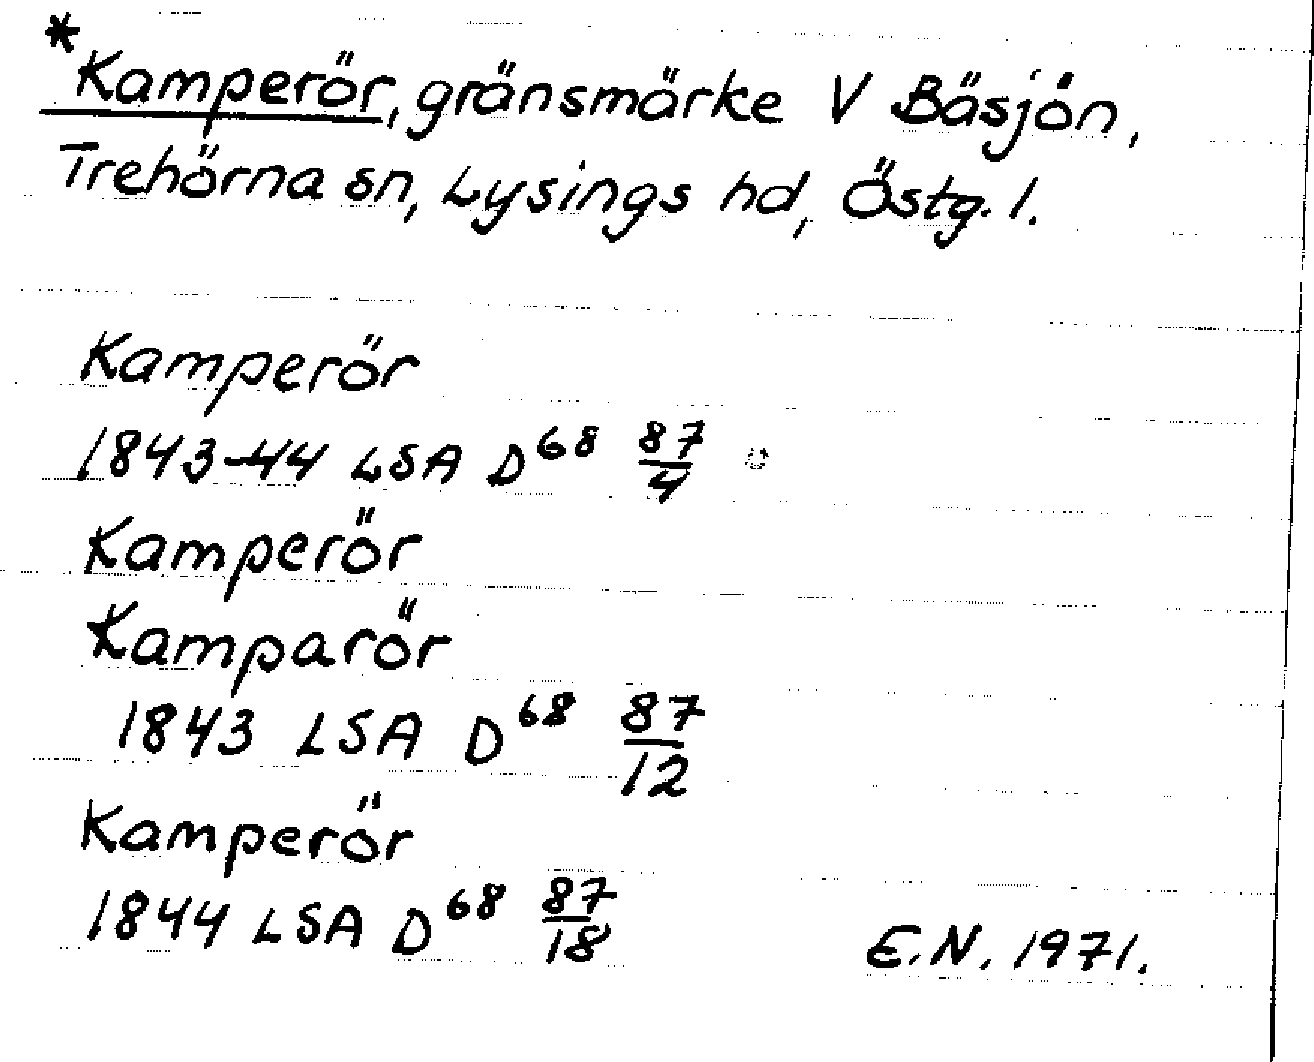 *Kamperör, gränsmärke V Bäsjön,
Trehörna sn, Lysings hd, Östg. l.
Kamperör
1843-44 LSA D⁶⁸ 87/4
Kamperör
Kamparör
1843 LSA D⁶⁸ 87/12
Kamperör
1844 LSA D⁶⁸ 87/18
E.N. 1971.